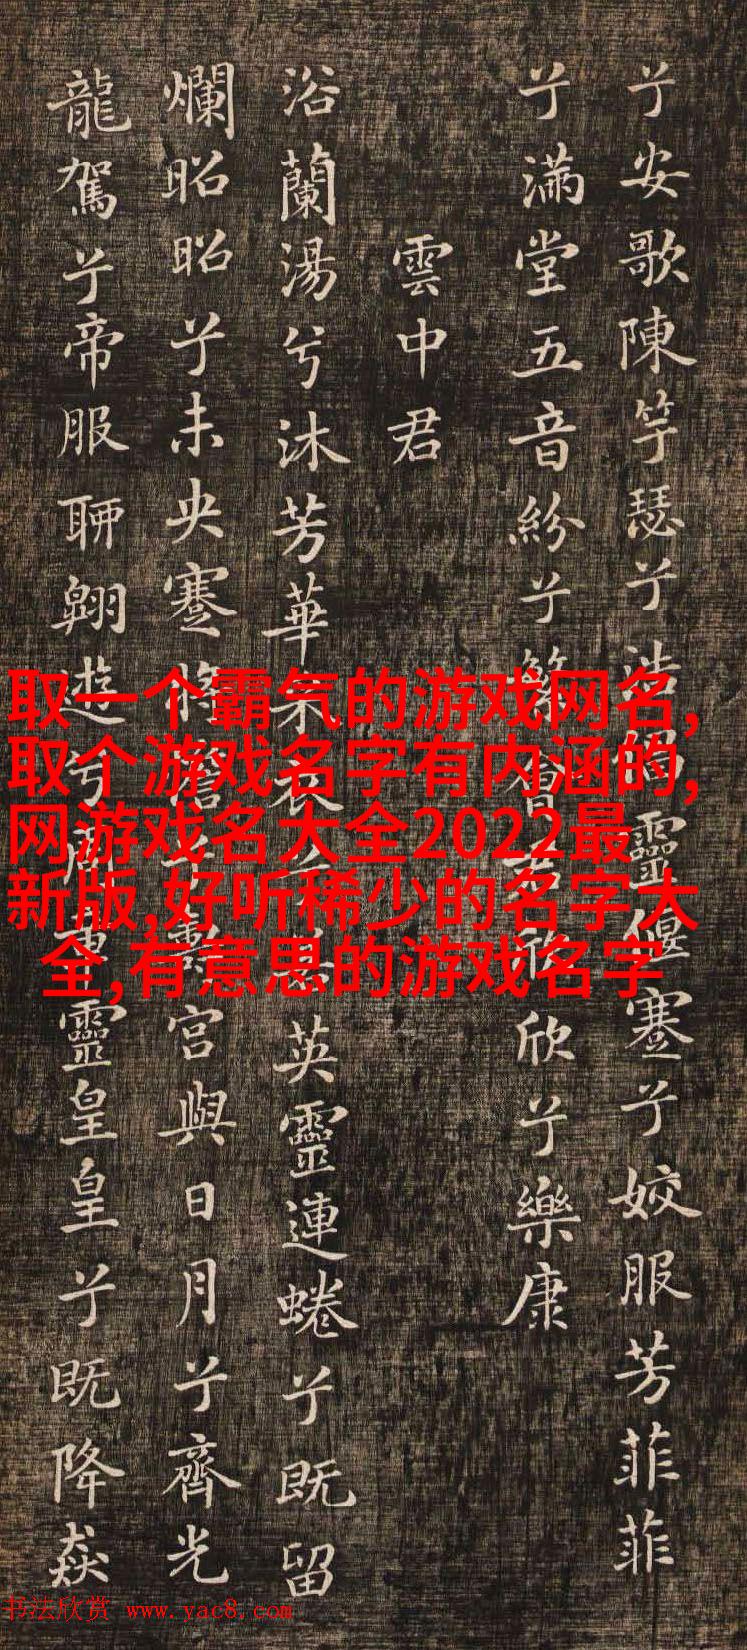 兮安歌陳竽瑟兮浩倡靈偃蹇兮姣服芳菲菲
兮滿堂五音紛兮繁會君欣欣兮樂康
雲中君
浴蘭湯兮沐芳華采衣兮若英靈連蜷兮既留
爛昭昭兮未央蹇將憺兮壽宮與日月兮齊光
龍駕兮帝服聊翱遊兮周章靈皇皇兮既降猋
取一个霸气的游戏网名,
取个游戏名字有内涵的,
网游戏名大全2022最
新版,好听稀少的名字大
全,有意思的游戏名字
书法欣赏 www.yac8.com